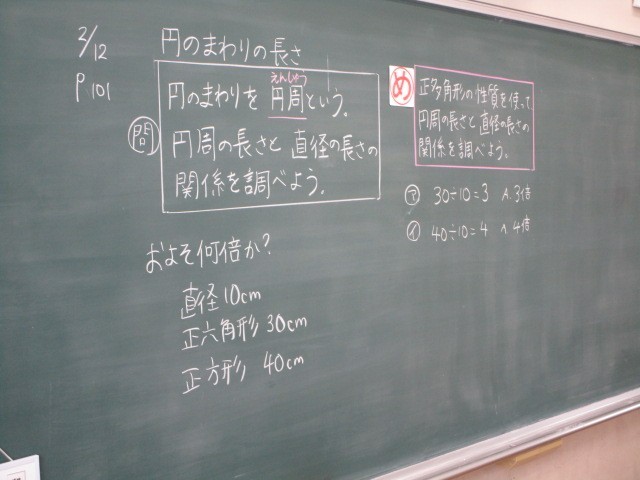 2/12
P101
円のまわりの長さ
えんしゅう
円のまわりを円周という。
問
円周の長さと直径の長さの
関係を調べよう。
およそ何倍か?
直径10cm
正六角形 30cm
正方形 40cm
め
正多角形の性質を使って
円周の長さと直径の長さの
関係を調べよう。
ア 30÷10=3 A.3倍
イ 40÷10=4 A.4倍